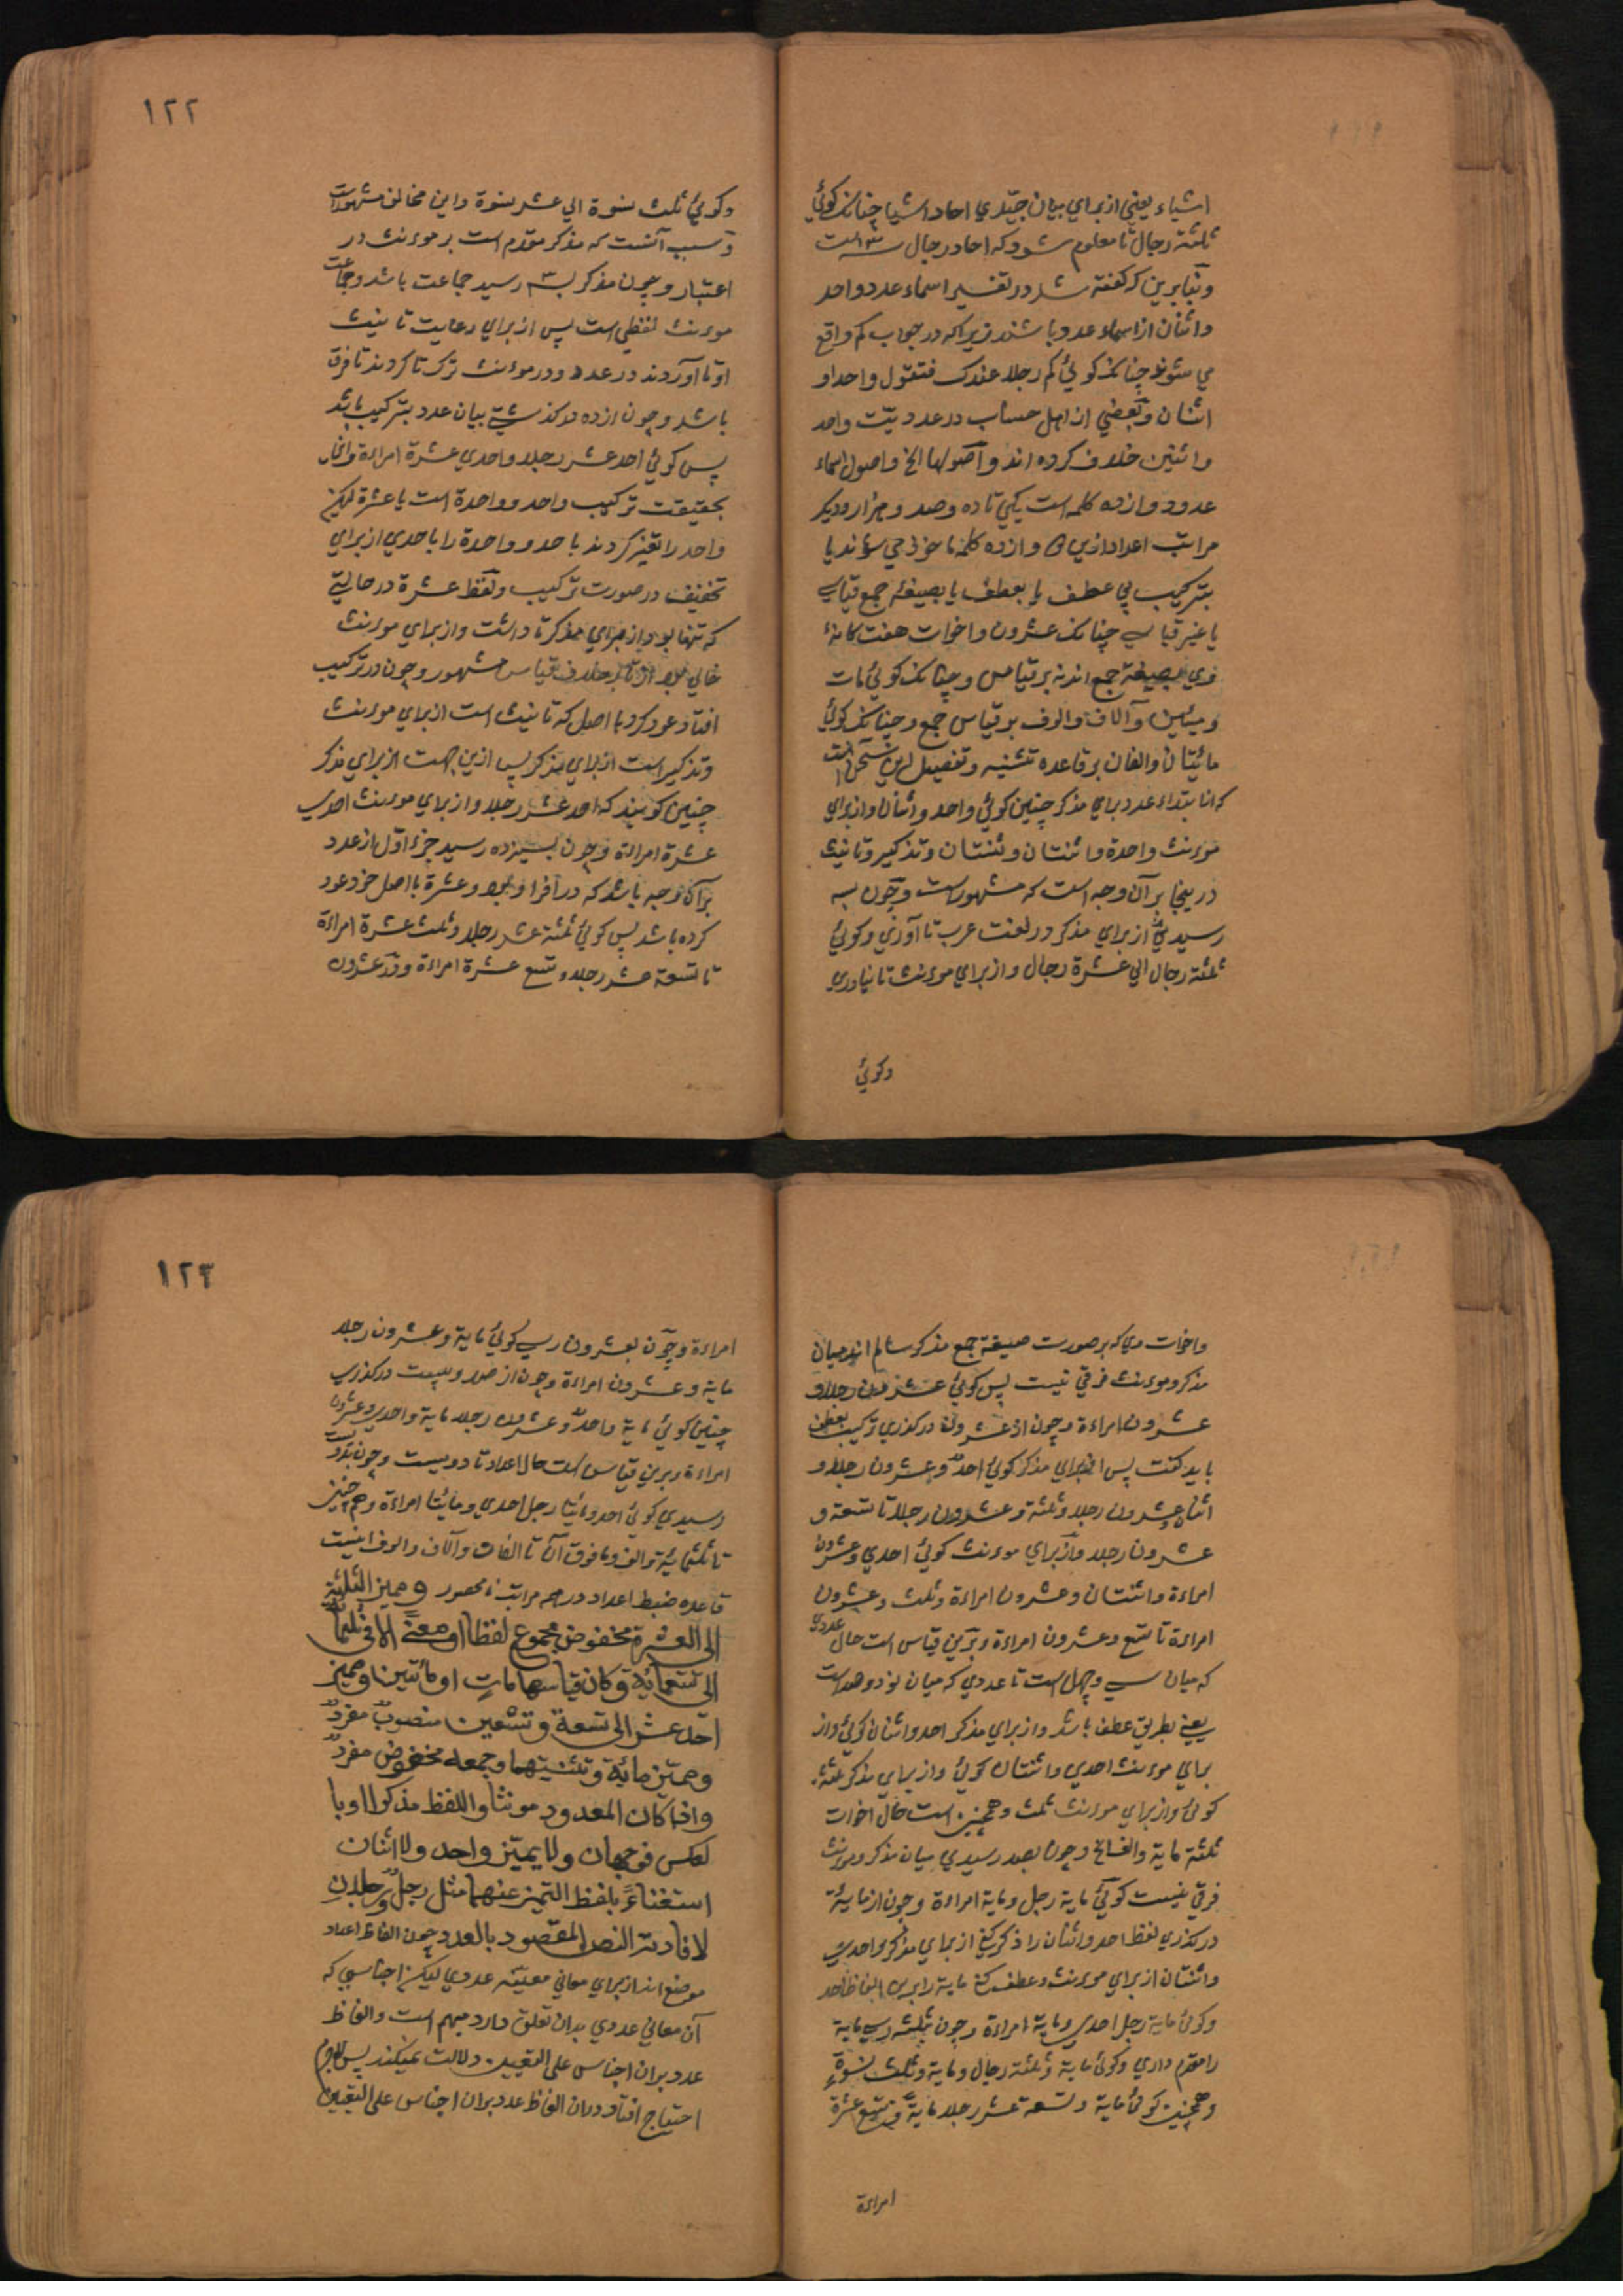 اشياء يعني از براي بيان چيزي احاد اشيا چنانک کوئي
ثلثة رجال تا معلوم شود که احاد رجال سه است
و بنابرين که کفته شد در تفسير اسماء عدد واحد
واثنان از اسماء عدد باشند زيرا که در جواب کم واقع
مي شوند چنانک کوئي کم رجلا عندک فتقول واحد او
اثنان وبعضي از اهل حساب در عدديت واحد
واثنين خلاف کرده اند واصولها الخ واصول اسماء
عدد دوازده کلمه است يکي تا ده وصد وهزار وديکر
مراتب اعداد ازين دوازده کلمه ماخوذ مي شوند يا
بترکيب بي عطف يا بعطف يا بصيغه جمع قياسي
يا غير قياسي چنانک عشرون واخوات هفت کانهٔ
وي بصيغه جمع اند نه بر قياس وچنانک کوئي مات
ومئين وآلاف والوف بر قياس جمع وچنانک کوئي
مائتان والفان بر قاعده تثنيه وتفصيل اين سخن آنست
که از ابتداء عدد براي مذکر چنين کوئي واحد واثنان واز براي
موءنث واحدة واثنتان وثنتان وتذکير وتانيث
درينجا بر آن وجه است که مشهورست وچون بسه
رسيدي از براي مذکر در لغت عرب تا آوري وکوئي
ثلثة رجال الي عشرة رجال واز براي موءنث تا نياوري
وکوئي
١٢٢
وکوئي ثلث نسوة الي عشر نسوة واين مخالف مشهورات
وسبب آنست که مذکر مقدم است بر موءنث در
اعتبار وچون مذکر بسه رسيد جماعت باشد وجماعت
موءنث لفظي است پس از براي رعايت تانيث
او تا آوردند در عدد ودر موءنث ترک تا کردند تا فرق
باشد وچون از ده درکذشتي بيان عدد بترکيب باشد
پس کوئي احد عشر رجلا واحدي عشرة امراءة وآن
بحقيقت ترکيب واحد وواحدة است با عشرة ليکن
واحد را تغير کردند باحد وواحدة را باحدي از براي
تخفيف در صورت ترکيب ولفظ عشرة در حالتي
که تنها بود از براي مذکر تا داشت واز براي موءنث
خالي بود از تا بر خلاف قياس مشهور وچون در ترکيب
افتاد عود کرد با اصل که تانيث است از براي موءنث
وتذکير است از براي مذکر پس ازين جهت از براي مذکر
چنين کويند که احد عشر رجلا واز براي موءنث احدي
عشرة امراءة وچون بسيزده رسيد جزء اول از عدد
بر آن وجه باشد که در افراد بود وعشرة با اصل خود عود
کرده باشد پس کوئي ثلثة عشر رجلا وثلث عشرة امراءة
تا تسعة عشر رجلا وتسع عشرة امراءة ودر عشرون
واخوات وي که بر صورت صيغه جمع مذکر سالم اند ميان
مذکر وموءنث فرقي نيست پس کوئي عشرون رجلا و
عشرون امراءة وچون از عشرون درکذري ترکيب بعطف
بايد کفت پس از براي مذکر کوئي احد وعشرون رجلا و
اثنان وعشرون رجلا وثلثة وعشرون رجلا تا تسعة و
عشرون رجلا واز براي موءنث کوئي احدي وعشرون
امراءة واثنتان وعشرون امراءة وثلث وعشرون
امراءة تا تسع وعشرون امراءة وبرين قياس است حال عددي
که ميان سي وچهل است تا عددي که ميان نود وصد است
يعني بطريق عطف باشد واز براي مذکر احد واثنان کوئي واز
براي موءنث احدي واثنتان کوئي واز براي مذکر ثلثة
کوئي واز براي موءنث ثلث وهمچنين است حال اخوات
ثلثة ماية والف الخ وچون بصد رسيدي ميان مذکر وموءنث
فرقي نيست کوئي ماية رجل وماية امراءة وچون از ماية
درکذري لفظ احد واثنان را ذکر کني از براي مذکر واحدي
واثنتان از براي موءنث وعطف کني ماية را برين الفاظ احد
وکوئي ماية رجل احدي وماية امراءة وچون بثلثة رسي ماية
را مقدم داري وکوئي ماية وثلثة رجال وماية وثلث نسوةٍ
وهمچنين کوئي ماية وتسعة عشر رجلا ماية وتسع عشرة
امراءة
١٢٣
امراءة وچون بعشرون رسي کوئي ماية وعشرون رجلا
ماية وعشرون امراءة وچون از صد وبيست درکذري
چنين کوئي ماية واحد وعشرون رجلا ماية واحدي وعشرون
امراءة وبرين قياس است حال اعداد تا دويست وچون بدويست
رسيدي کوئي احد ومائتا رجل احدي ومائتا امراءة وهمچنين
تا ثلثمائة والف وما فوق آن تا الفات وآلاف والوف اينست
قاعده ضبط اعداد در جمه مراتب نامحصور ومميز الثلثة
الى العشرة مخفوض مجموع لفظا او معنىً الا في ثلثمائة
الى تسعمائة وكان قياسها مات او مأتين ومميز
احد عشر الى تسعة وتسعين منصوبٌ مفردٌ
ومميّز مائة وتثنيتهما وجمعه مخفوض مفردٌ
واذا كان المعدود مونثا واللفظ مذكرا او با
لعكس فوجهان ولا يميّز واحد ولا اثنان
استغناءً بلفظ التميز عنهما مثل رجل ورجلان
لافادته النص المقصود بالعدد چون الفاظ اعداد
موضوع اند از براي معاني معينه عددي ليکن اجناسي که
آن معاني عددي بدان تعلق دارد مبهم است والفاظ
عدد بران اجناس علي التعيين دلالت نميکند پس لاجرم
احتياج افتاد دران الفاظ عدد بران اجناس علي التعيين